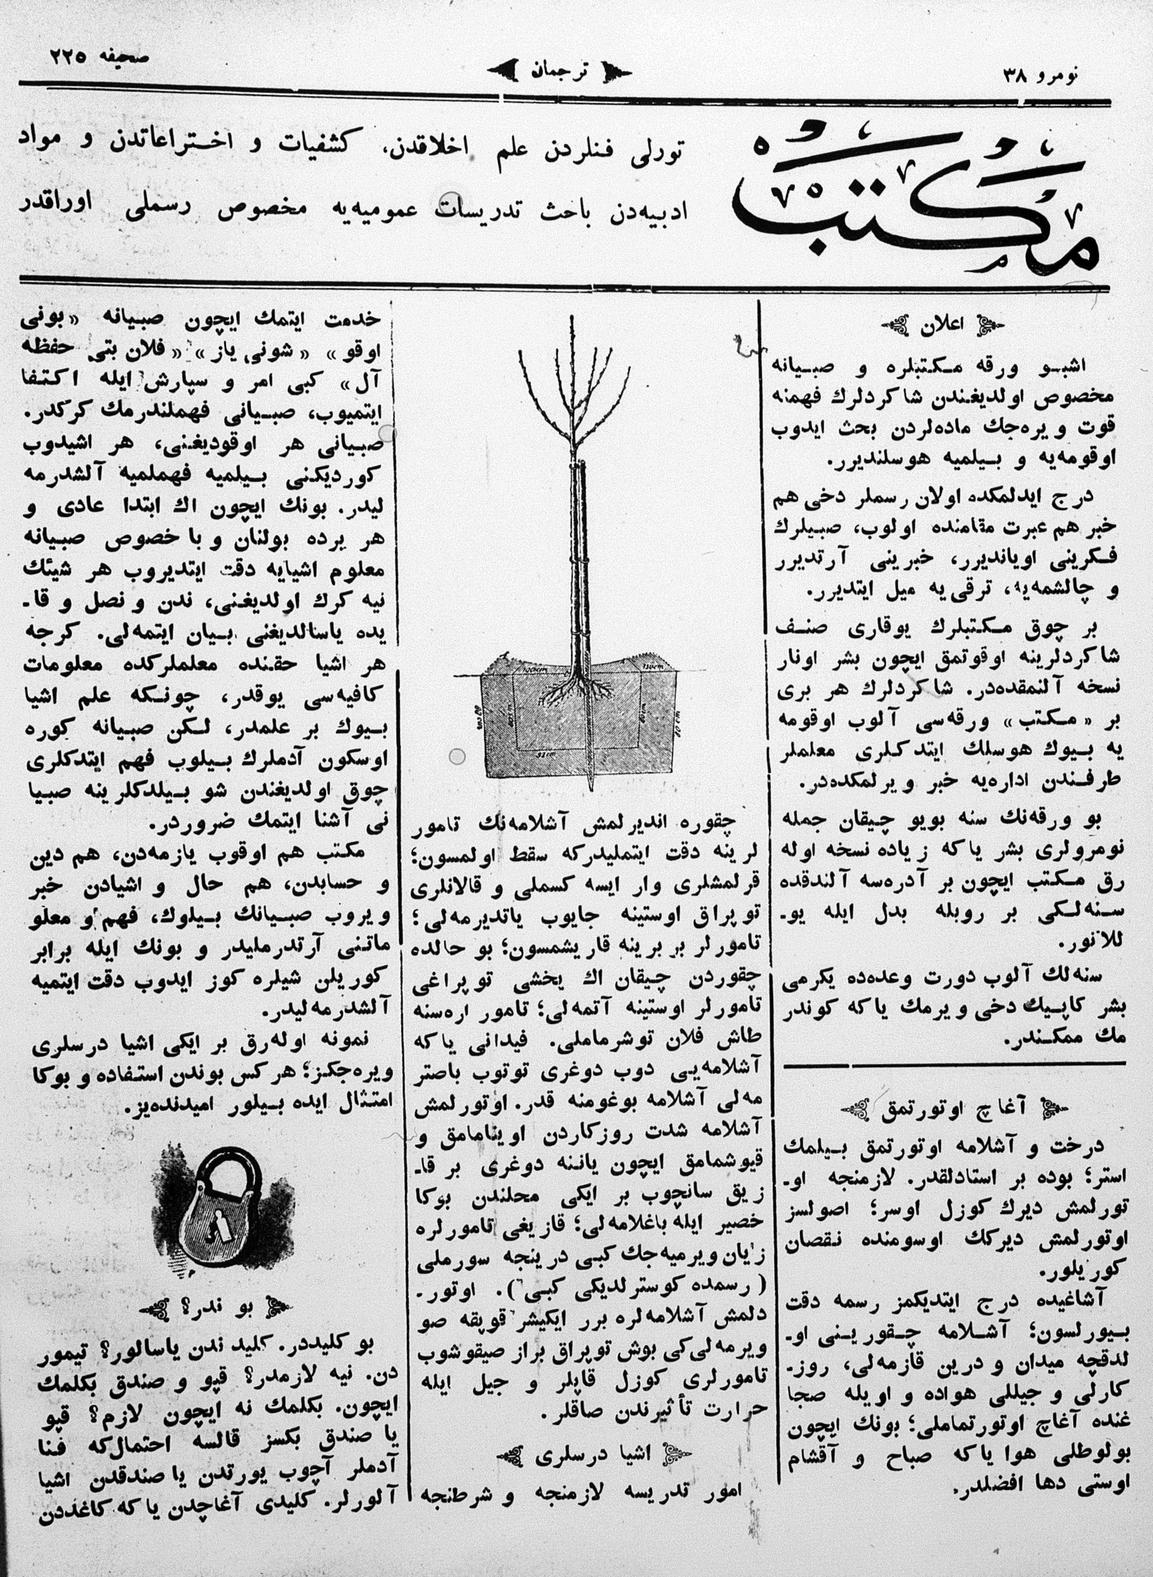 نومرو ٣٨
ترجمان
صحيفه ٢٢٥
مكتب
تورلى فنلردن علم اخلاقدن، كشفيات و اختراعاتدن و مواد
ادبيه‌دن باحث تدريسات عموميه‌يه مخصوص رسملى اوراقدر
اعلان
اشبو ورقه مكتبلره و صبيانه
مخصوص اولديغندن شاكردلرك فهمنه
قوت ويره‌جك ماده‌لردن بحث ايدوب
اوقومه‌يه و بيلميه هوسلنديرر.
درج ايدلمكده اولان رسملر دخى هم
خبر هم عبرت مقامنده اولوب، صبيلرك
فكرينى اوياندیرر، خبرينى آرتديرر
و چالشمه‌يه، ترقى‌يه ميل ايتديرر.
بر چوق مكتبلرك يوقارى صنف
شاكردلرينه اوقوتمق ايچون بشر اونار
نسخه آلنمقده‌در. شاكردلرك هر برى
بر «مكتب» ورقه‌سى آلوب اوقومه
يه بيوك هوسلك ايتدكلرى معلملر
طرفندن اداره‌يه خبر ويرلمكده‌در.
بو ورقه‌نك سنه بويو چيقان جمله
نومرولرى بشر ياكه زياده نسخه اوله
رق مكتب ايچون بر آدره‌سه آلندقده
سنه‌لكى بر روبله بدل ايله يو-
للانور.
سنه‌لك آلوب دورت وعده‌ده يكرمى
بشر كاپيك دخى ويرمك ياكه كوندر
مك ممكندر.
آغاچ اوتورتمق
درخت و آشلامه اوتورتمق بيلمك
استر؛ بوده بر استادلقدر. لازمنجه او-
تورلمش ديرك كوزل اوسر؛ اصولسز
اوتورلمش ديركك اوسومنده نقصان
كوريلور.
آشاغيده درج ايتديكمز رسمه دقت
بيورلسون؛ آشلامه چقورينى او-
لدقچه ميدان و درين قازمه‌لى، روز-
كارلى و جيللى هواده و اويله صجا
غنده آغاچ اوتورتماملى؛ بونك ايچون
بولوطلى هوا ياكه صباح و آقشام
اوستى دها افضلدر.
100cm
130cm
60cm
60cm
چقوره اندیرلمش آشلامه‌نك تامور
لرينه دقت ايتمليدركه سقط اولمسون؛
قرلمشلرى وار ايسه كسملى و قالانلرى
توپراق اوستينه جايوب ياتديرمه‌لى؛
تامورلر بر برينه قاريشمسون؛ بو حالده
چقوردن چيقان اك يخشى توپراغى
تامورلر اوستينه آتمه‌لى؛ تامور اره‌سنه
طاش فلان توشرماملى. فيدانى ياكه
آشلامه‌يى دوب دوغرى توتوب باصتر
مه‌لى آشلامه بوغومنه قدر. اوتورلمش
آشلامه شدت روزكاردن اوينامامق و
قيوشمامق ايچون ياننه دوغرى بر قا-
زيق سانچوب بر ايكى محلندن بوكا
خصير ايله باغلامه‌لى؛ قازيغى تامورلره
زيان ويرميه‌جك كبى درينجه سورملى
(رسمده كوسترلديكى كبى). اوتور-
دلمش آشلامه‌لره برر ايكيشر قوپقه صو
ويرمه‌لى‌كى بوش توپراق براز صيقوشوب
تامورلرى كوزل قاپلر و جيل ايله
حرارت تأثيرندن صاقلر.
اشيا درسلرى
امور تدريسه لازمنجه و شرطنجه
خدمت ايتمك ايچون صبيانه «بونى
اوقو» «شونى ياز» «فلان بتى حفظه
آل» كبى امر و سپارش ايله اكتفا
ايتميوب، صبيانى فهملندرمك كركدر.
صبيانى هر اوقوديغنى، هر اشيدوب
كورديكنى بيلميه فهملميه آلشدرمه
ليدر. بونك ايچون اك ابتدا عادى و
هر يرده بولنان و با خصوص صبيانه
معلوم اشيايه دقت ايتديروب هر شيئك
نيه كرك اولديغنى، ندن و نصل و قا-
يده ياسالديغنى بيان ايتمه‌لى. كرجه
هر اشيا حقنده معلملركده معلومات
كافيه‌سى يوقدر، چونكه علم اشيا
بيوك بر علمدر، لكن صبيانه كوره
اوسكون آدملرك بيلوب فهم ايتدكلرى
چوق اولديغندن شو بيلدكلرينه صبيا
نى آشنا ايتمك ضروردر.
مكتب هم اوقوب يازمه‌دن، هم دين
و حسابدن، هم حال و اشيادن خبر
ويروب صبيانك بيلوك، فهم و معلو
ماتنى آرتدرمليدر و بونك ايله برابر
كوريلن شيلره كوز ايدوب دقت ايتميه
آلشدرمه‌ليدر.
نمونه اوله‌رق بر ايكى اشيا درسلرى
ويره‌جكز؛ هركس بوندن استفاده و بوكا
امتثال ايده بيلور اميدنده‌يز.
بو ندر؟
بو كليددر. كليد ندن ياسالور؟ تيمور
دن. نيه لازمدر؟ قپو و صندق بكلمك
ايچون. بكلمك نه ايچون لازم؟ قپو
يا صندق بكسز قالسه احتمال‌كه فنا
آدملر آچوب يورتدن يا صندقدن اشيا
آلورلر. كليدى آغاچدن ياكه كاغددن